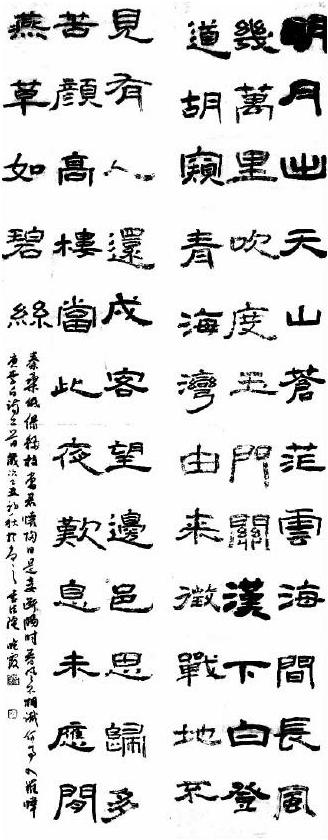 明月出天山蒼茫雲海間長風
幾萬里吹度玉門關漢下白登
道胡窺青海灣由來徵戰地不
見有人還戍客望邊邑思歸多
苦顏高樓當此夜歎息未應閒
燕草如碧絲
秦桑低綠枝當君懷歸日是妾斷腸時春風不相識何事入羅幃
唐李白詩二首歲次丑初秋於曉霞